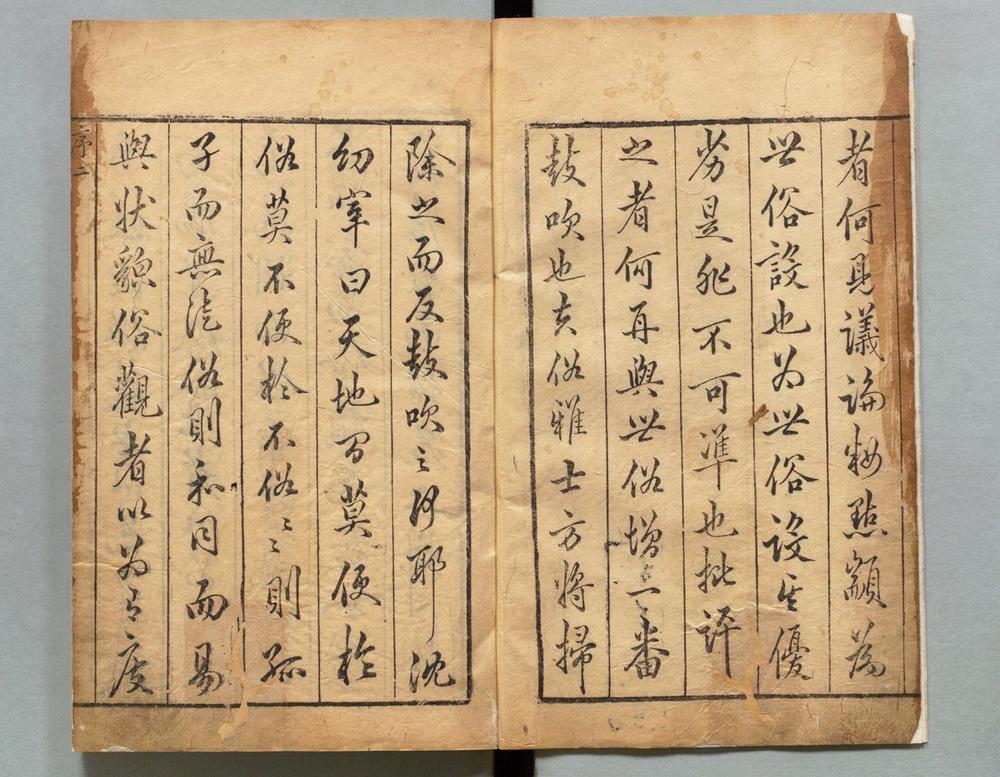 者何見議論籹點顓為
世俗設也為世俗設其優
劣是非不可準也批評
之者何再與世俗增一番
鼓吹也夫俗雅士方將掃
除之而反鼓吹之何耶沈
幼宰曰天地間莫便於
俗莫不便於不俗〻〻則孤
子而無徒俗則和同而易
與狀貌俗觀者以為有度
序 二